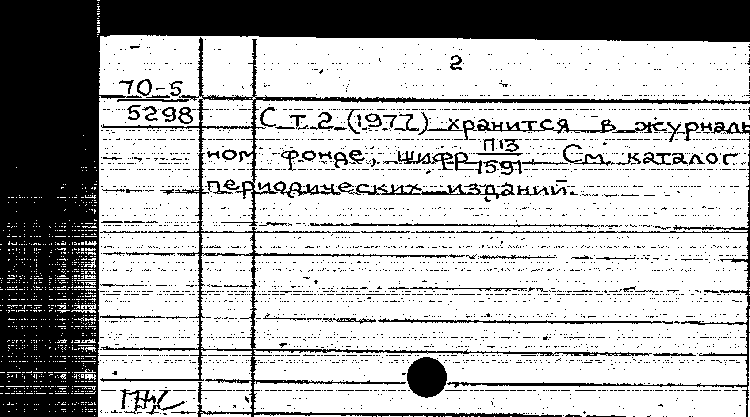 2
70-5
5298
С т. 2 (1977) хранится в журналь
ном фонде, шифр П13/1591. См. каталог
периодических изданий.